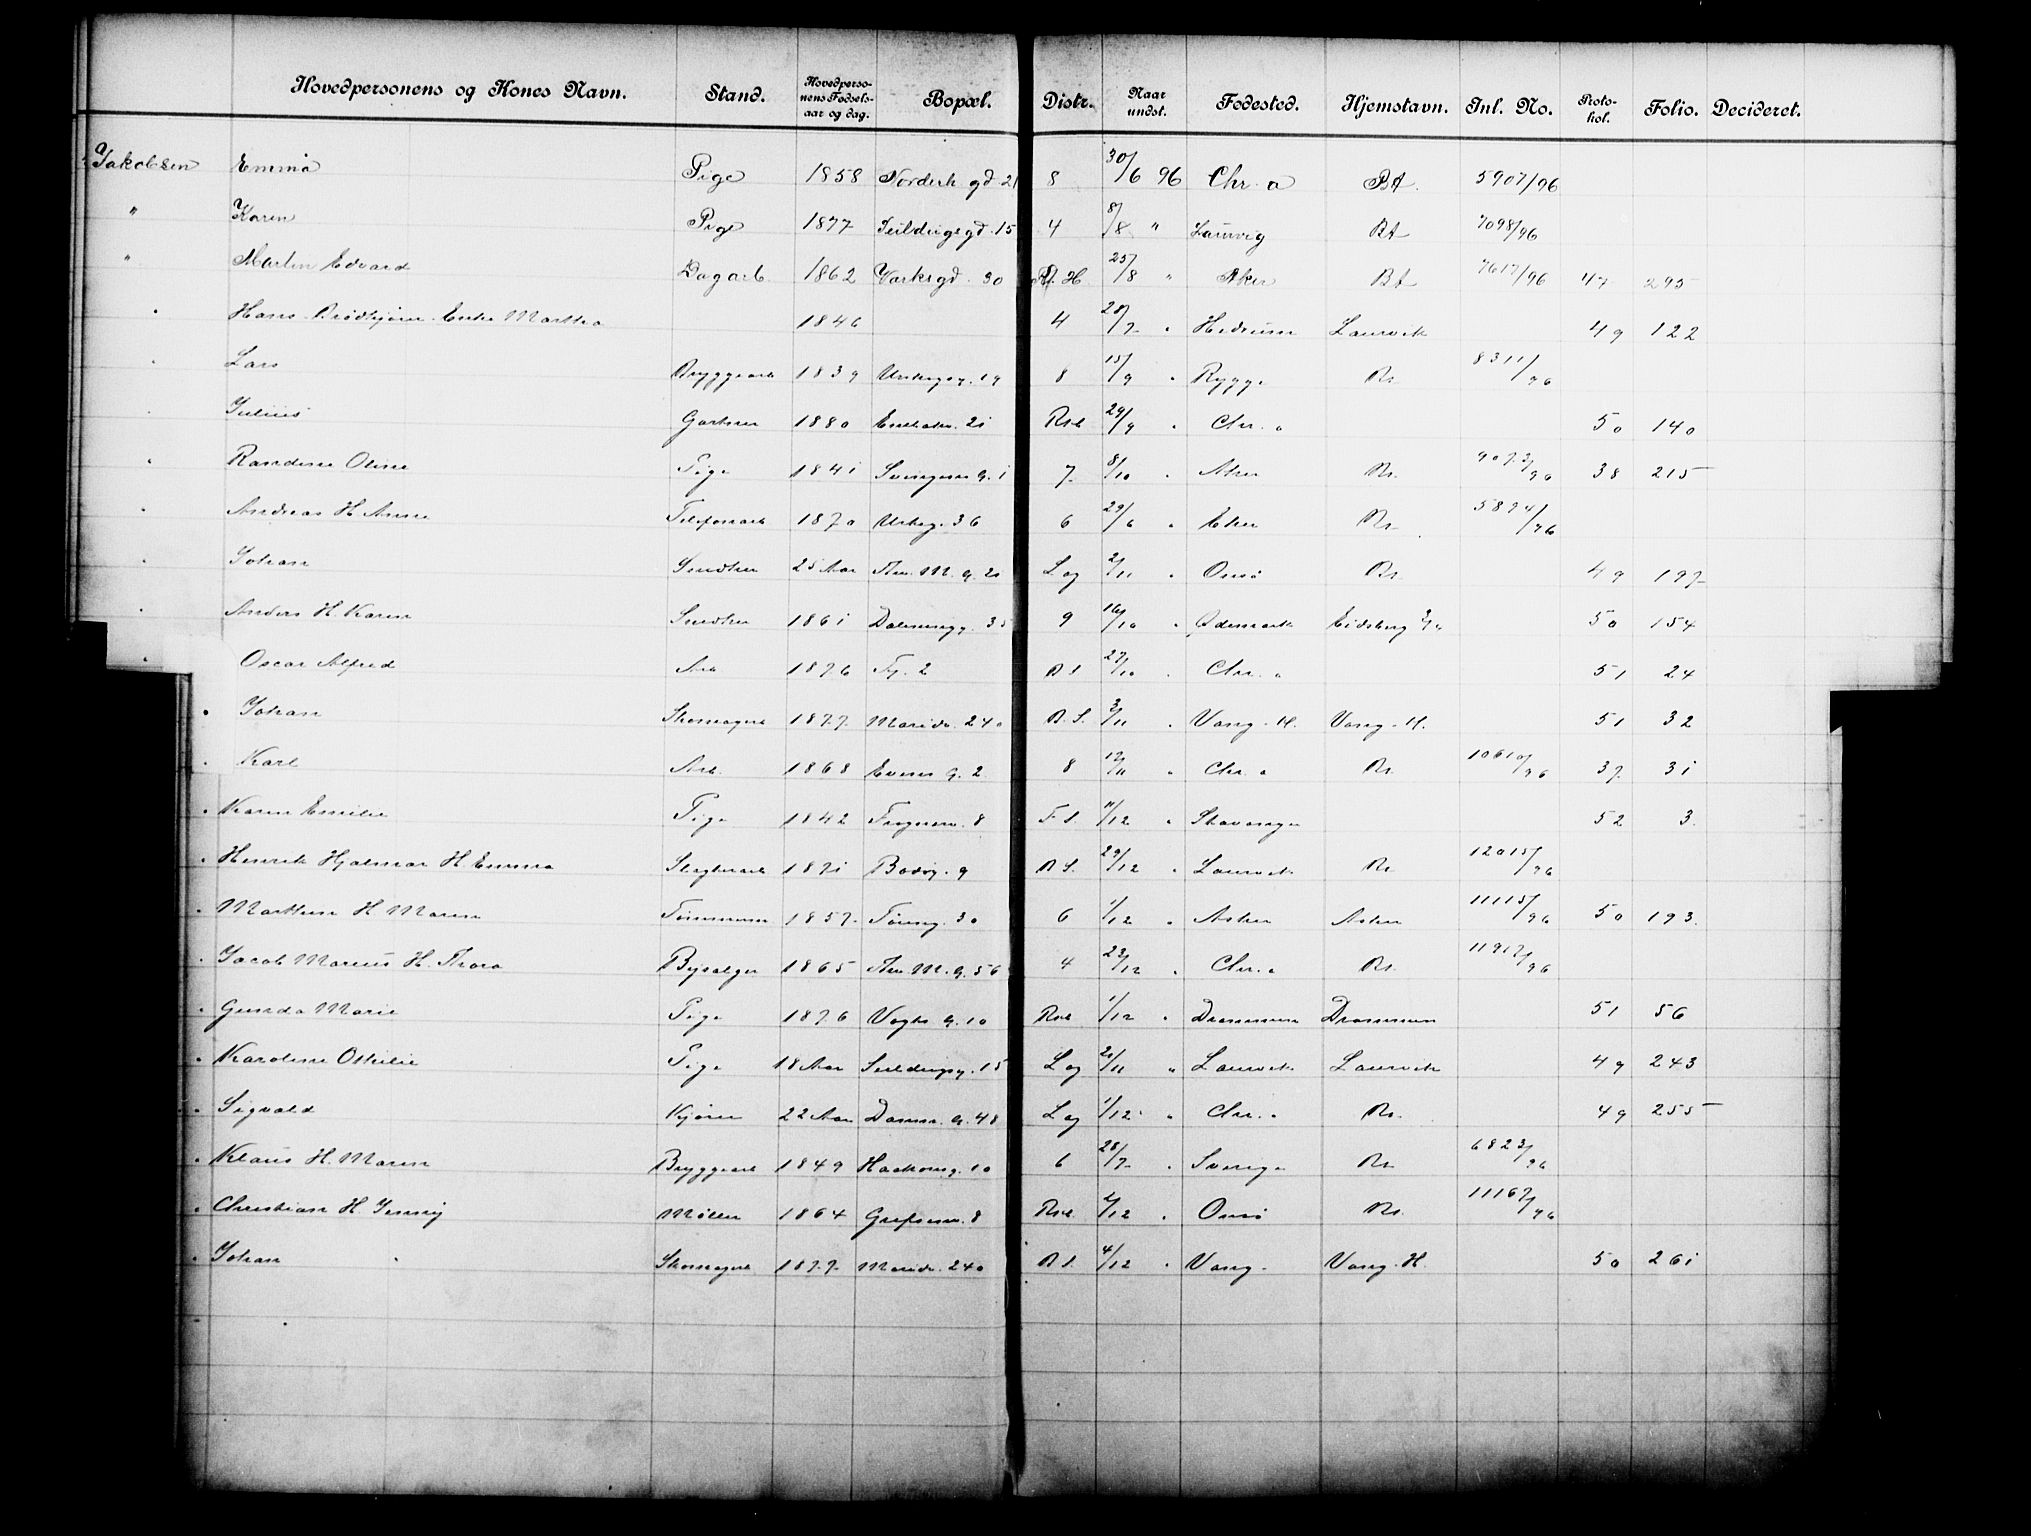 Hovedpersonens og Kones Navn. Stand. Hovedperso-nens Fødsels-aar og dag. Bopæl. Distr. Naar undst. Fødested. Hjemstavn. Inl. No. Proto-kol. Folio. Decideret.
Jakobsen Emma Pige 1858 Norderh gd. 21 8 30/6 96 Chr. a 5907/96
" Karen Pige 1877 Seildugsgd. 15 4 8/8 " Laurvig 7098/96
" Martin Edvard Dagarb. 1862 Yorksgd. 30 25/8 " Aker 7617/96 47 295
" Hans Brødkjører Enke Marthea 1846 4 28/7 " Hedrum Laurvik 49 122
" Lars Bryggearb 1839 19 8 15/9 " Rygge 8311/96
" Julius Gartner 1880 21 Rst 29/9 " Chr. a 50 140
" Randine Oline Pige 1841 Sveingaar G. 1 7 8/10 " Aker 9072/96 38 215
" Andreas H. Anne Telefonarb 1870 Urteg. 36 6 29/6 " Eker 5894/96
" Johan Snedker 25 Aar Thv. M. G. 21 Log 2/11 " Onsø 49 197
" Anders H. Karen Snedker 1861 Dælenengg. 35 9 16/10 " Ødemark Eidsberg 50 154
" Oscar Alfred Arb 1876 2 27/10 " Chr. a 51 24
" Johan Skomagerb 1877 Maridv. 240 B. S. 3/11 " Vang. H. Vang. H. 51 32
" Karl Arb. 1868 Evens G. 2 8 12/11 " Chr. a 10610/96 37 31
" Karen Emilie Pige 1842 Frognerv. 8 F. S. 11/12 " Stavanger 52 3.
" Henrik Hjalmar H. Emma Slagterarb 1871 Badsg. 9 B. S. 29/12 " Laurvik 12015/96
" Marthin H. Maren Tømmerm 1857 Tøieng. 30 6 1/12 " Asker Asker 11115/96 50 193.
" Jacob Marius H. Thora Bysælger 1865 Thv. M. G. 56 4 23/12 " Chr. a 11917/96
" Gunda Marie Pige 1876 Vogts G. 10 Rst 1/12 " Drammen Drammen 51 56
" Karoline Othilie Pige 18 Aar Seildugsg. 15 Log 21/11 " Laurvik Laurvik 49 243
" Sigvald Kjører 22 Aar Danm. G. 48 Log 1/12 " Chr. a 49 255
" Klaus H. Maren Bryggearb 1849 Haakonsg. 10 6 28/7 " Sverige 6823/96
" Christian H. Jenny Møller 1864 Grefsenv. 8 Rst. 2/12 " Onsø 11167/96
" Johan Skomagerb 1877 Maridv. 240 B. S. 4/12 " Vang Vang. H. 50 261